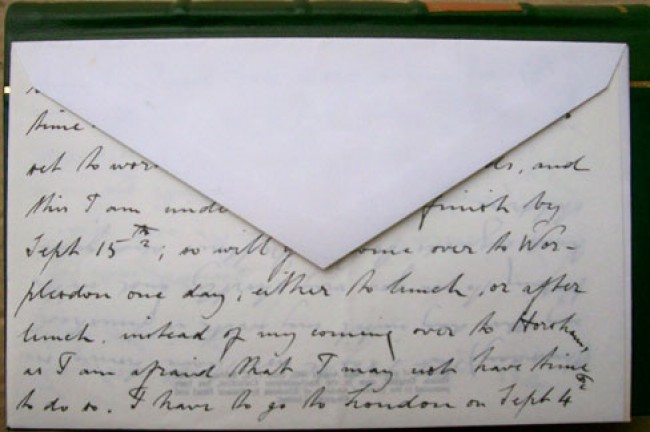 time.
set to wor ds, and
this I am unde finish by
Sept 15th; so will y come over to Wor-
plesdon one day, either to lunch, or after
lunch. instead of my coming over to Horsham,
as I am afraid that I may not have time
to do so. I have to go to London on Sept 4th